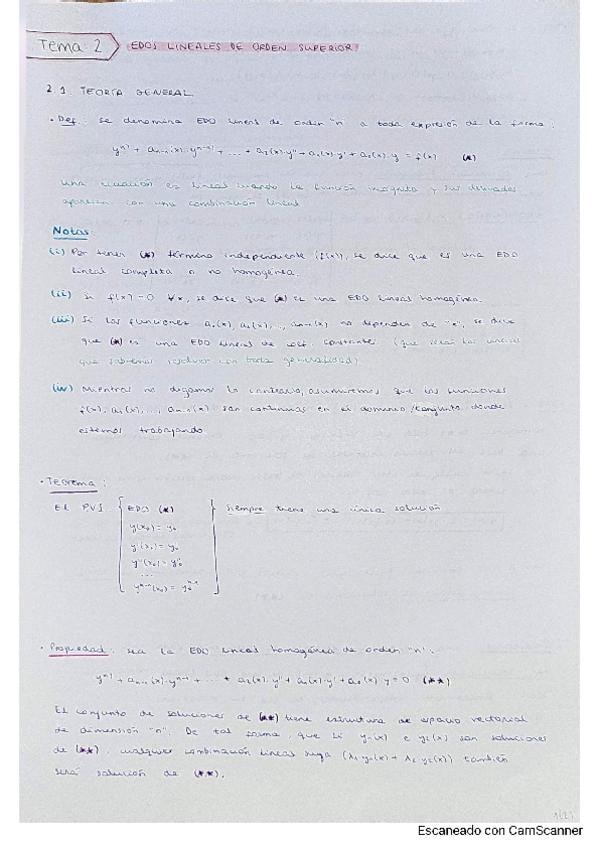 Tema 2 EDOS LINEALES DE ORDEN SUPERIOR
2.1 TEORÍA GENERAL
· Def: se denomina EDO lineal de orden "n" a toda expresión de la forma:
yⁿ⁾ + aₙ₋₁(x)·yⁿ⁻¹⁾ + ... + a₂(x)·y'' + a₁(x)·y' + a₀(x)·y = f(x) (*)
una ecuación es lineal cuando la función incógnita y sus derivadas
aparecen con una combinación lineal
Notas
(i) Por tener (*) término independiente (f(x)), se dice que es una EDO
lineal completa o no homogénea.
(ii) si f(x)=0 ∀x, se dice que (*) es una EDO lineal homogénea.
(iii) Si las funciones a₀(x), a₁(x), ..., aₙ₋₁(x) no dependen de "x", se dice
que (*) es una EDO lineal de coef. constantes (que serán las únicas
que sabremos resolver con toda generalidad)
(iv) Mientras no digamos lo contrario, asumiremos que las funciones
f(x), a₁(x), ..., aₙ₋₁(x) son continuas en el dominio/conjunto donde
estemos trabajando.
· Teorema:
El PVI EDO (*) siempre tiene una única solución
y(x₀) = y₀
y'(x₀) = y'₀
y''(x₀) = y''₀
...
yⁿ⁻¹⁾(x₀) = y₀ⁿ⁻¹⁾
· Propiedad: sea la EDO lineal homogénea de orden "n":
yⁿ⁾ + aₙ₋₁(x)·yⁿ⁻¹⁾ + ... + a₂(x)·y'' + a₁(x)·y' + a₀(x)·y = 0 (**)
El conjunto de soluciones de (**) tiene estructura de espacio vectorial
de dimensión "n". De tal forma, que si y₁(x) e y₂(x) son soluciones
de (**), cualquier combinación lineal suya (λ₁y₁(x) + λ₂y₂(x)) también
será solución de (**).
Escaneado con CamScanner